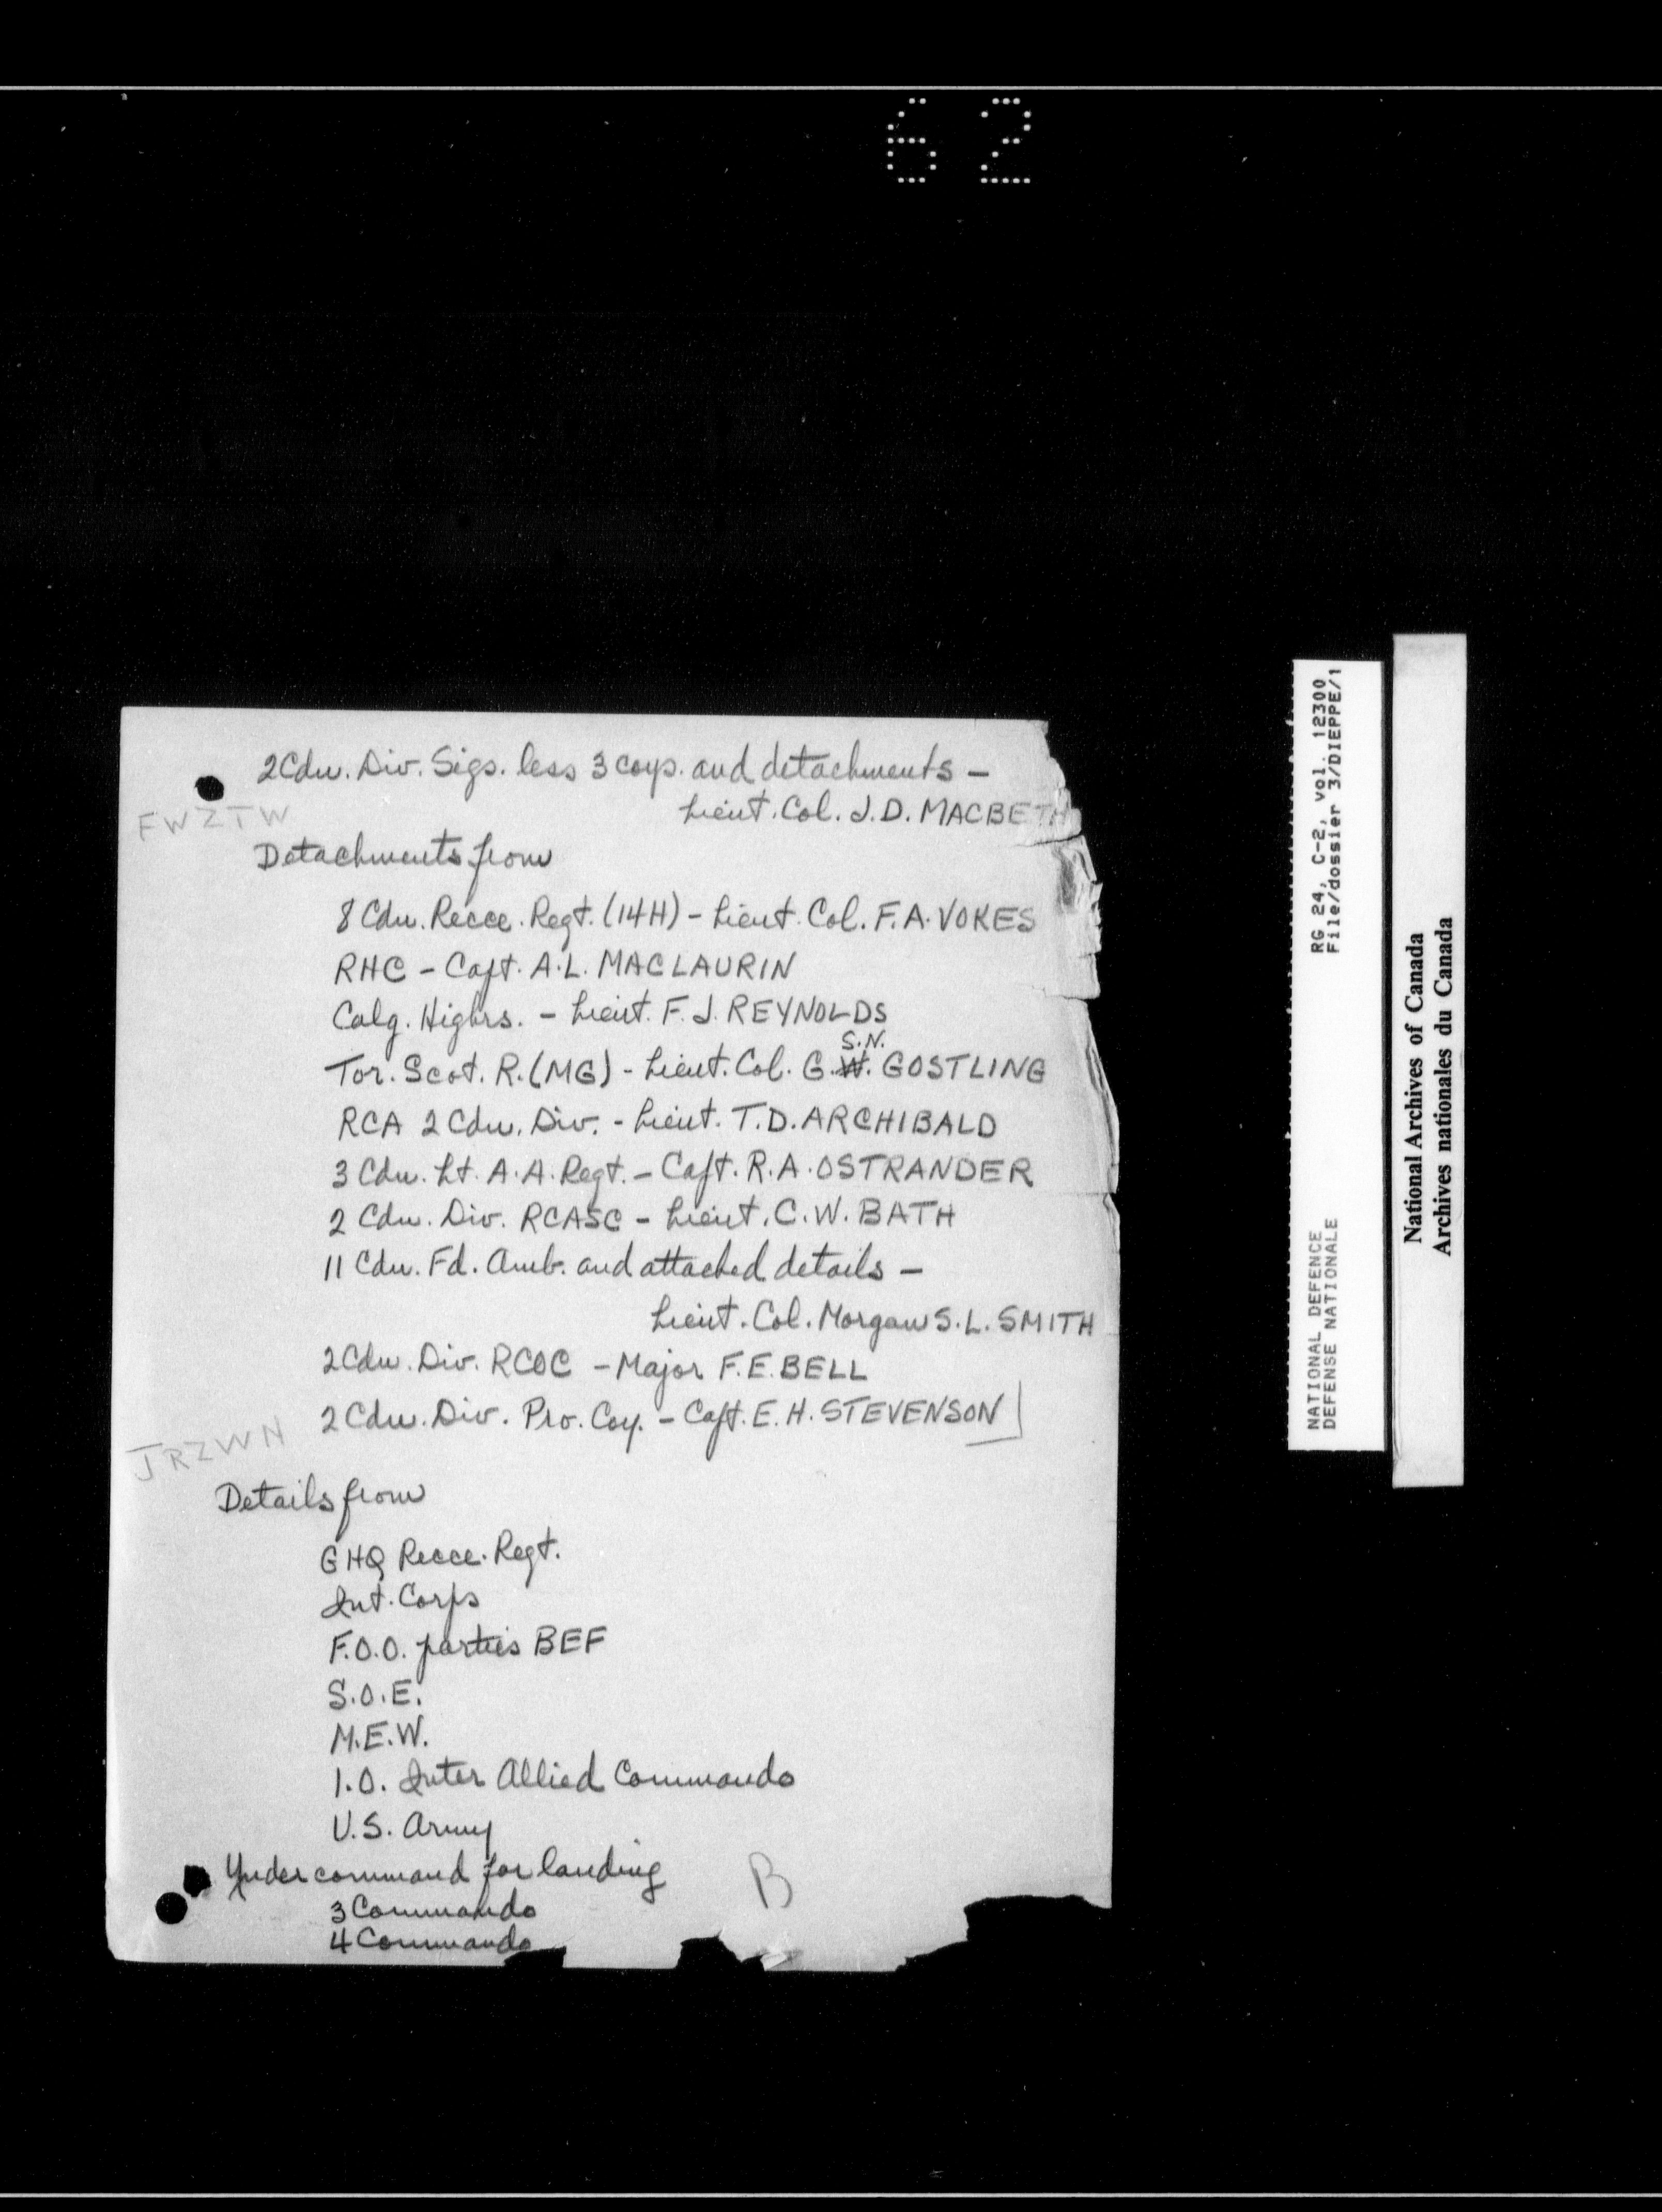 62
2 Cdn. Div. Sigs. less 3 coys. and detachments –
Lieut. Col. J.D. MACBETH
FWZTW
Detachments from
8 Cdn. Recce. Regt. (14H) – Lieut. Col. F.A. VOKES
RHC – Capt. A.L. MACLAURIN
Calg. Highrs. – Lieut. F.J. REYNOLDS
S.N.
Tor. Scot. R. (MG) – Lieut. Col. G.W. GOSTLING
RCA 2 Cdn. Div. – Lieut. T.D. ARCHIBALD
3 Cdn. Lt. A.A. Regt. – Capt. R.A. OSTRANDER
2 Cdn. Div. RCASC – Lieut. C.W. BATH
11 Cdn. Fd. Amb. and attached details –
Lieut. Col. Morgan S.L. SMITH
2 Cdn. Div. RCOC – Major F.E. BELL
2 Cdn. Div. Pro. Coy. – Capt. E.H. STEVENSON
JRZWN
Details from
GHQ Recce. Regt.
Int. Corps
F.O.O. parties BEF
S.O.E.
M.E.W.
I.O. Inter Allied Commando
U.S. Army
Under command for landing
3 Commando
4 Commando
B
RG 24, C-2, vol. 12300
File/dossier 3/DIEPPE/1
NATIONAL DEFENCE
DEFENSE NATIONALE
National Archives of Canada
Archives nationales du Canada